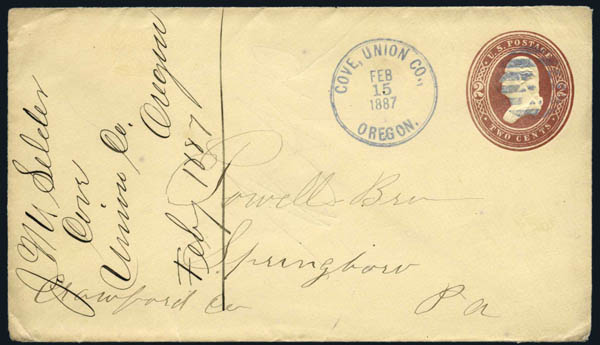 J M Selder
Cove
Union Co. Oregon
Feby 1887
COVE, UNION CO.,
FEB
15
1887
OREGON.
U.S. POSTAGE
2 2
TWO CENTS
Powell Bro
Springboro
Crawford Co Pa